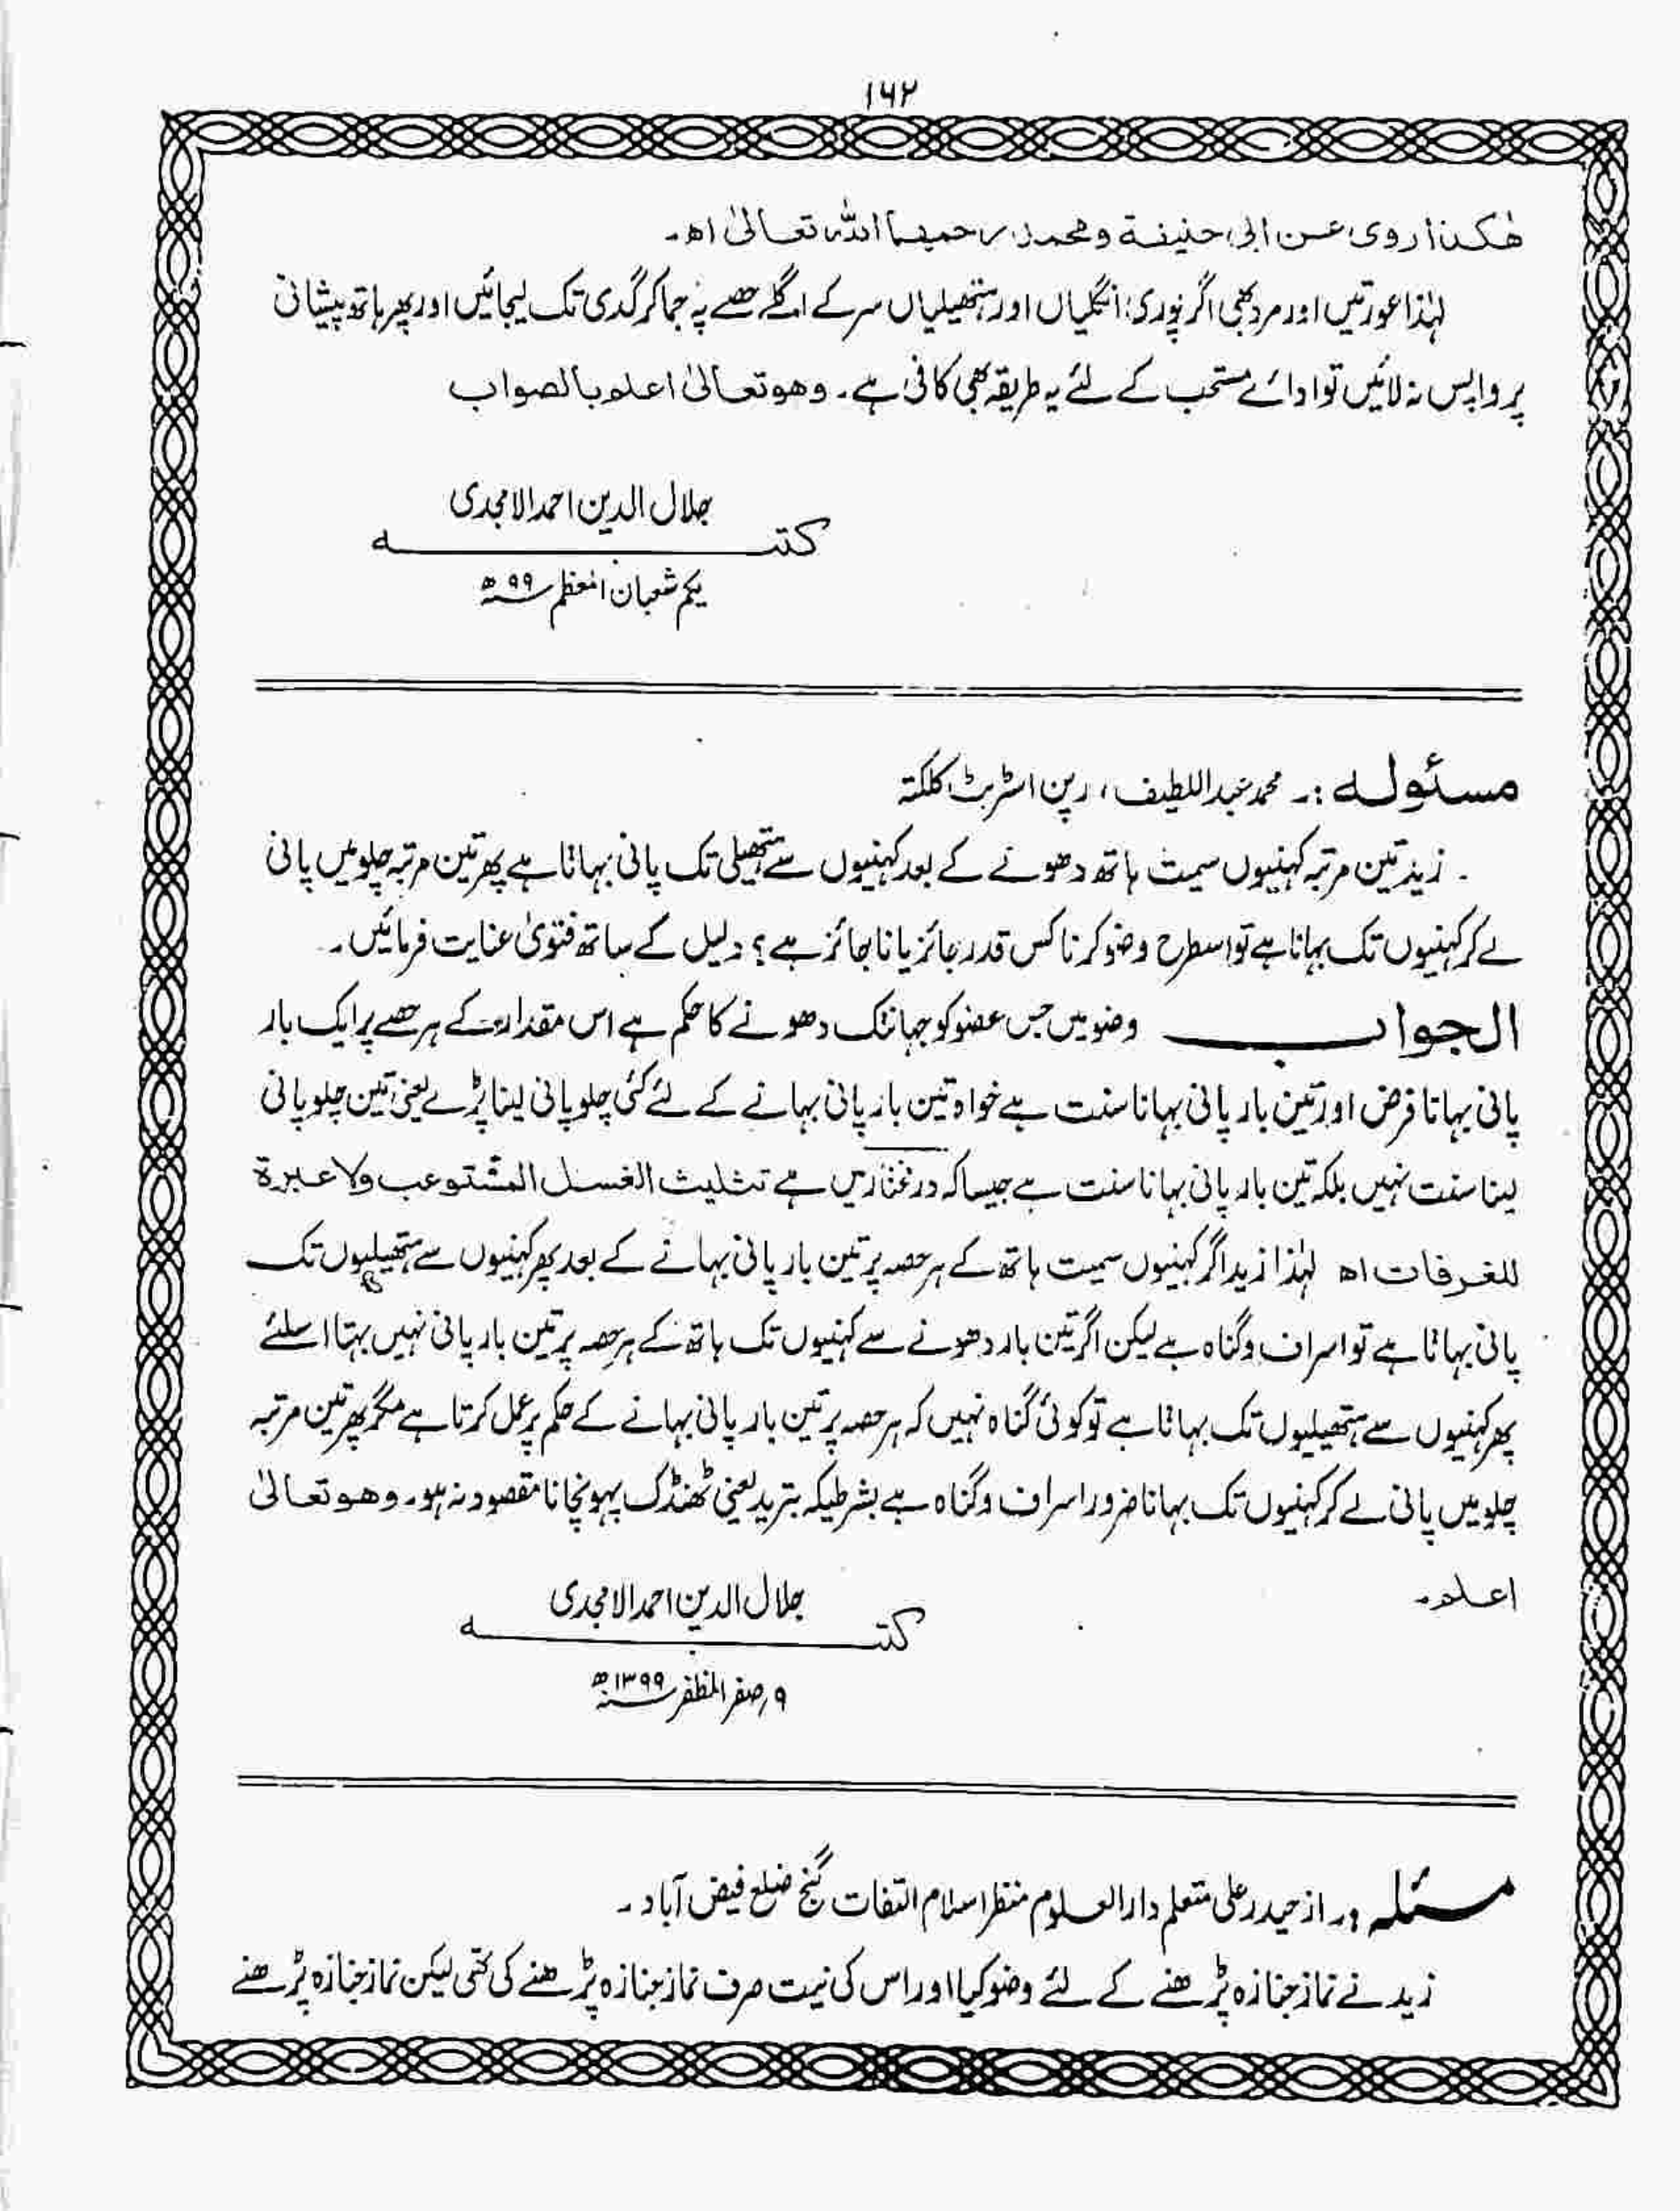 ۱۶۲
ھٰکذا روی عن ابی حنیفة ومحمد رحمهما الله تعالیٰ اھ۔
لہٰذا عورتیں اور مرد بھی اگر پوری انگلیاں اور ہتھیلیاں سر کے اگلے حصے پہ جما کر گدی تک لیجائیں اور پھر ہاتھ پیشانی
پر واپس نہ لائیں تو ادائے مستحب کے لئے یہ طریقہ بھی کافی ہے۔ وھو تعالیٰ اعلم بالصواب
جلال الدین احمد الامجدی
کتبه
یکم شعبان المعظم سنہ ۹۹ھ
مسئولہ :۔ محمد عبداللطیف، رپن اسٹریٹ کلکتہ
زید تین مرتبہ کہنیوں سمیت ہاتھ دھونے کے بعد کہنیوں سے ہتھیلی تک پانی بہاتا ہے پھر تین مرتبہ چلو میں پانی
لے کر کہنیوں تک بہاتا ہے تو اسطرح وضو کرنا کس قدر جائز یا ناجائز ہے؟ دلیل کے ساتھ فتویٰ عنایت فرمائیں۔
الجواب وضو میں جس عضو کو جہانتک دھونے کا حکم ہے اس مقدار کے ہر حصے پر ایک بار
پانی بہانا فرض اور تین بار پانی بہانا سنت ہے خواہ تین بار پانی بہانے کے لئے کئی چلو پانی لینا پڑے یعنی تین چلو پانی
لینا سنت نہیں بلکہ تین بار پانی بہانا سنت ہے جیسا کہ درمختار میں ہے تثلیث الغسل المستوعب ولا عبرة
للغرفات اھ لہٰذا زید اگر کہنیوں سمیت ہاتھ کے ہر حصہ پر تین بار پانی بہانے کے بعد پھر کہنیوں سے ہتھیلیوں تک
پانی بہاتا ہے تو اسراف و گناہ ہے لیکن اگر تین بار دھونے سے کہنیوں تک ہاتھ کے ہر حصہ پر تین بار پانی نہیں بہتا اسلئے
پھر کہنیوں سے ہتھیلیوں تک بہاتا ہے تو کوئی گناہ نہیں کہ ہر حصہ پر تین بار پانی بہانے کے حکم پر عمل کرتا ہے مگر پھر تین مرتبہ
چلو میں پانی لے کر کہنیوں تک بہانا ضرور اسراف و گناہ ہے بشرطیکہ تبرید یعنی ٹھنڈک پہونچانا مقصود نہ ہو۔ وھو تعالیٰ
اعلم۔
جلال الدین احمد الامجدی
کتبه
۹؍صفر المظفر سنہ ۱۳۹۹ھ
مسئلہ :۔ از حیدر علی متعلم دارالعلوم منظر اسلام التفات گنج ضلع فیض آباد۔
زید نے نماز جنازہ پڑھنے کے لئے وضو کیا اور اس کی نیت صرف نماز جنازہ پڑھنے کی تھی لیکن نماز جنازہ پڑھنے